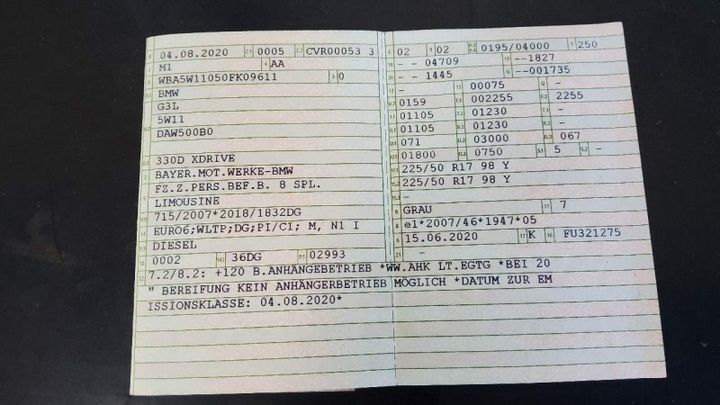 04.08.2020 0005 CVR00053 3
M1 AA
WBA5W11050FK09611 0
BMW
G3L
5W11
DAW500B0
330D XDRIVE
BAYER.MOT.WERKE-BMW
FZ.Z.PERS.BEF.B. 8 SPL.
LIMOUSINE
715/2007*2018/1832DG
EURO6;WLTP;DG;PI/CI; M, N1 I
DIESEL
0002 36DG 02993
02 02 0195/04000 250
- - 04709 --1827
- - 1445 --001735
- 00075 -
0159 002255 2255
01105 01230 -
01105 01230 -
071 03000 067
01800 0750 5 -
225/50 R17 98 Y
225/50 R17 98 Y
-
GRAU 7
e1*2007/46*1947*05
15.06.2020 K FU321275
7.2/8.2: +120 B.ANHÄNGEBETRIEB *WW.AHK LT.EGTG *BEI 20
" BEREIFUNG KEIN ANHÄNGERBETRIEB MÖGLICH *DATUM ZUR EM
ISSIONSKLASSE: 04.08.2020*